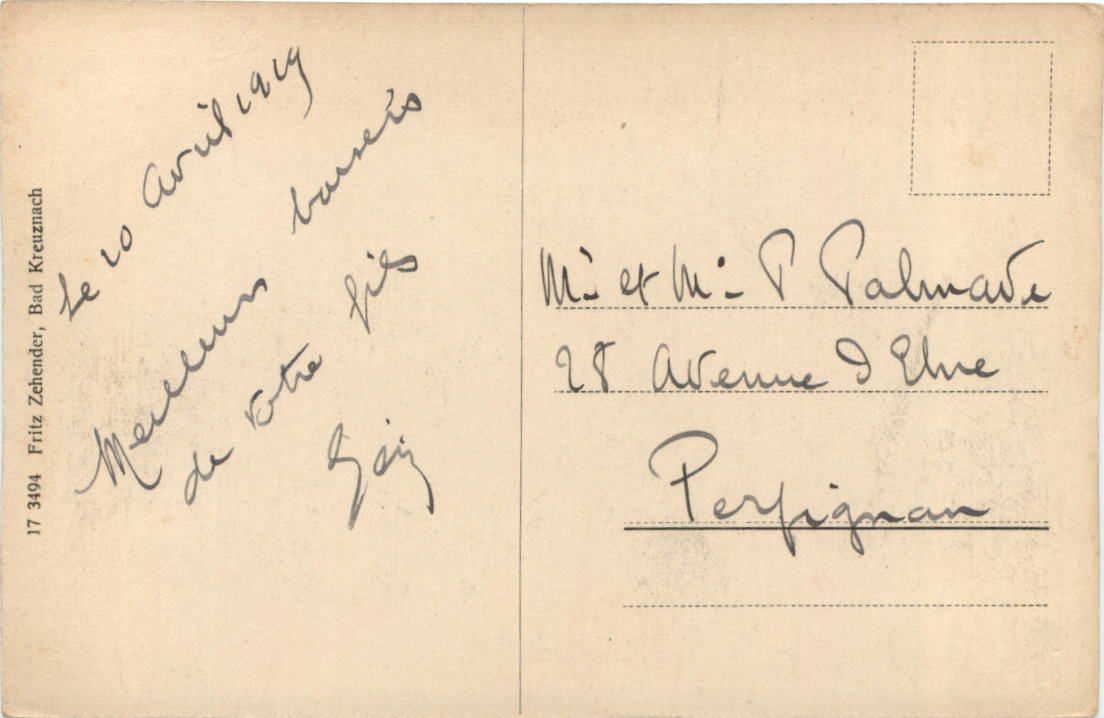 17 3494 Fritz Zehender, Bad Kreuznach
Le 10 Avril 1919
Meilleurs baisers
de votre fils
Mr et Me P Palmade
28 Avenue d Elne
Perpignan